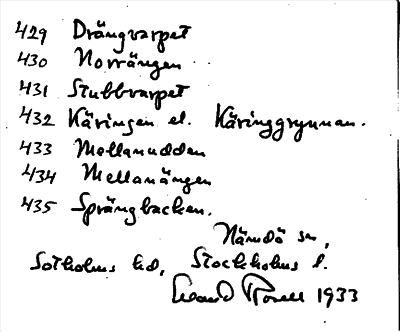 429 Drängvarpet
430 Norrängen
431 Stubbvarpet
432 Käringen el. Käringgrynnan.
433 Mellanudden
434 Mellanängen
435 Språngbacken.
Nämdö sn,
Sotholms hd, Stockholms l.
1933